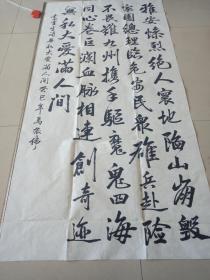 雅安惨烈绝人寰地陷山崩毁
家园总理临危安民众雄兵赴险
不畏难九州携手驱魔鬼四海
同心卷巨澜血脉相连創奇迹
無私大爱满人间